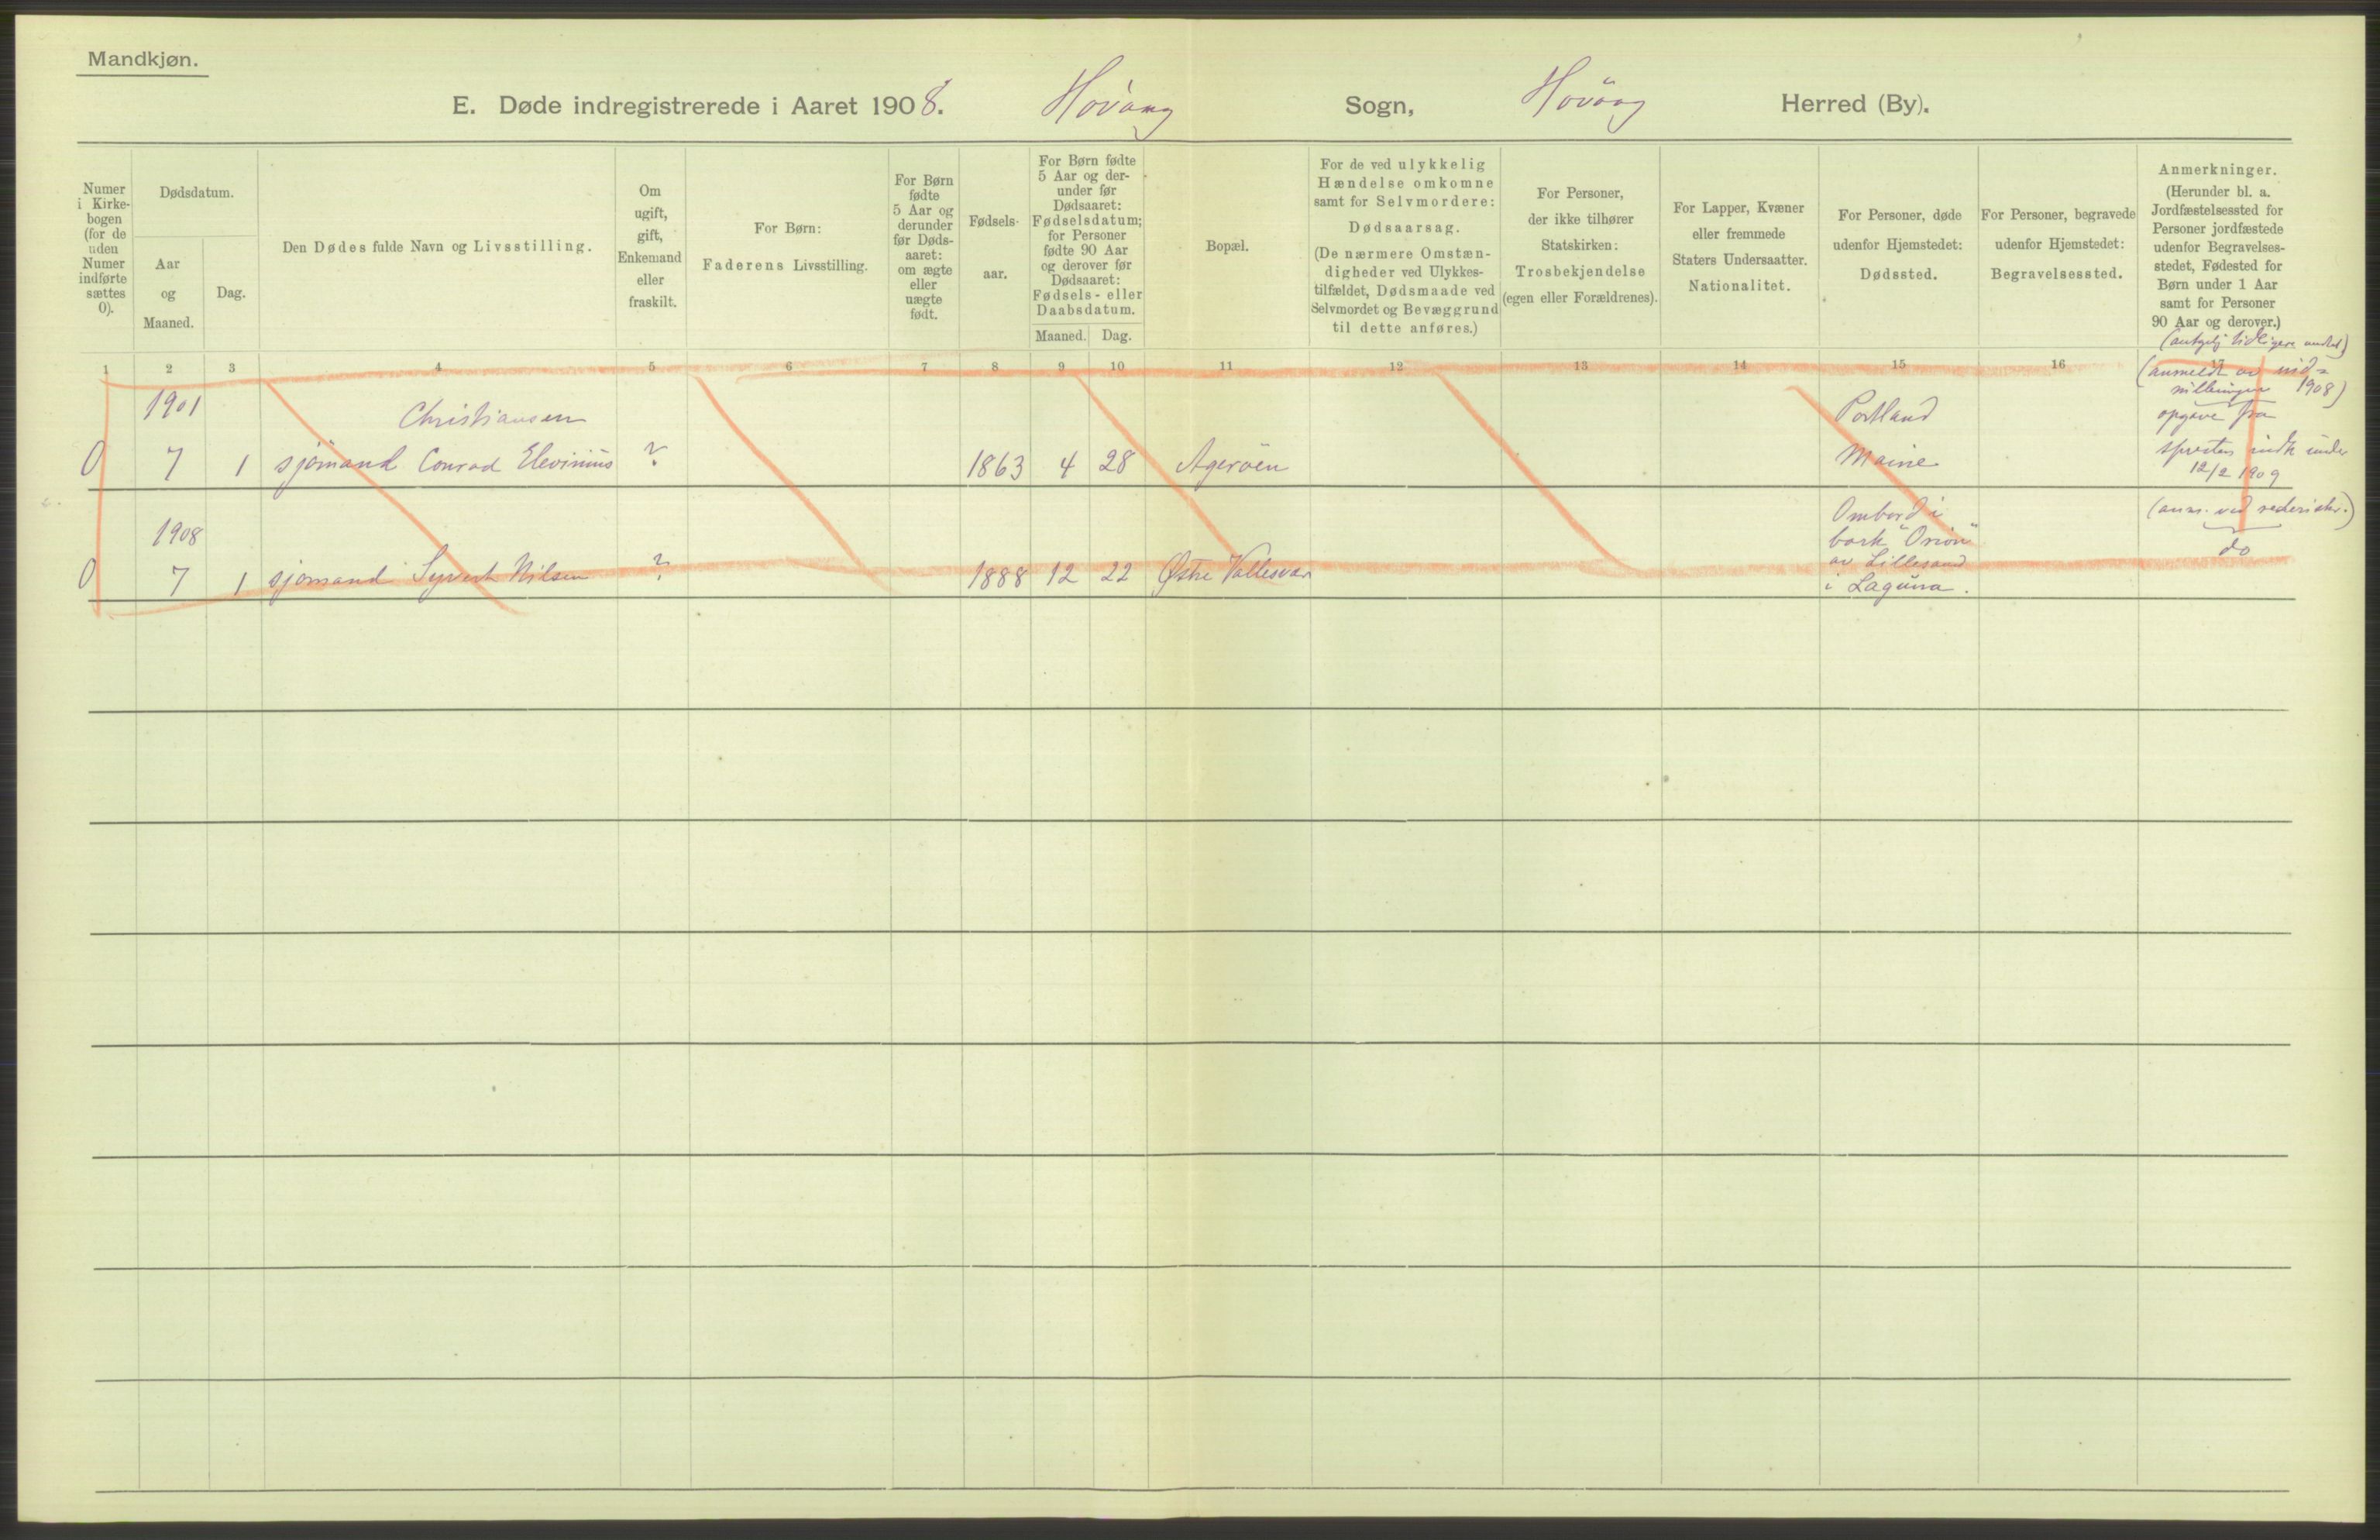 Mandkjøn.
E. Døde indregistrerede i Aaret 1908. Høvaag Sogn, Høvaag Herred (By).
Numer
i Kirke-
bogen
(for de
uden
Numer
indførte
sættes
0).
Dødsdatum.
Aar
og
Maaned.
Dag.
Den Dødes fulde Navn og Livsstilling.
Om
ugift,
gift,
Enkemand
eller
fraskilt.
For Børn:
Faderens Livsstilling.
For Børn
fødte
5 Aar og
derunder
før Døds-
aaret:
om ægte
eller
uægte
født.
Fødsels-
aar.
For Børn fødte
5 Aar og der-
under før
Dødsaaret:
Fødselsdatum;
for Personer
fødte 90 Aar
og derover før
Dødsaaret:
Fødsels- eller
Daabsdatum.
Maaned. Dag.
Bopæl.
For de ved ulykkelig
Hændelse omkomne
samt for Selvmordere:
Dødsaarsag.
(De nærmere Omstæn-
digheder ved Ulykkes-
tilfældet, Dødsmaade ved
Selvmordet og Bevæggrund
til dette anføres.)
For Personer,
der ikke tilhører
Statskirken:
Trosbekjendelse
(egen eller Forældrenes).
For Lapper, Kvæner
eller fremmede
Staters Undersaatter.
Nationalitet.
For Personer, døde
udenfor Hjemstedet:
Dødssted.
For Personer, begravede
udenfor Hjemstedet:
Begravelsessted.
Anmerkninger.
(Herunder bl. a.
Jordfæstelsessted for
Personer jordfæstede
udenfor Begravelses-
stedet, Fødested for
Børn under 1 Aar
samt for Personer
90 Aar og derover.)
1 2 3 4 5 6 7 8 9 10 11 12 13 14 15 16 17
1901 Christiansen Portland
0 7 1 sjömand Conrad Elevinius ? 1863 4 28 Ageröen Maine
(anmeldt av
1908)
opgave fra
12/2 1909
1908
0 7 1 sjömand Syvert Nilsen ? 1888 12 22 Østre Vallesvær
Ombord i
bark "Orion"
av Lillesand
i Laguna.
do